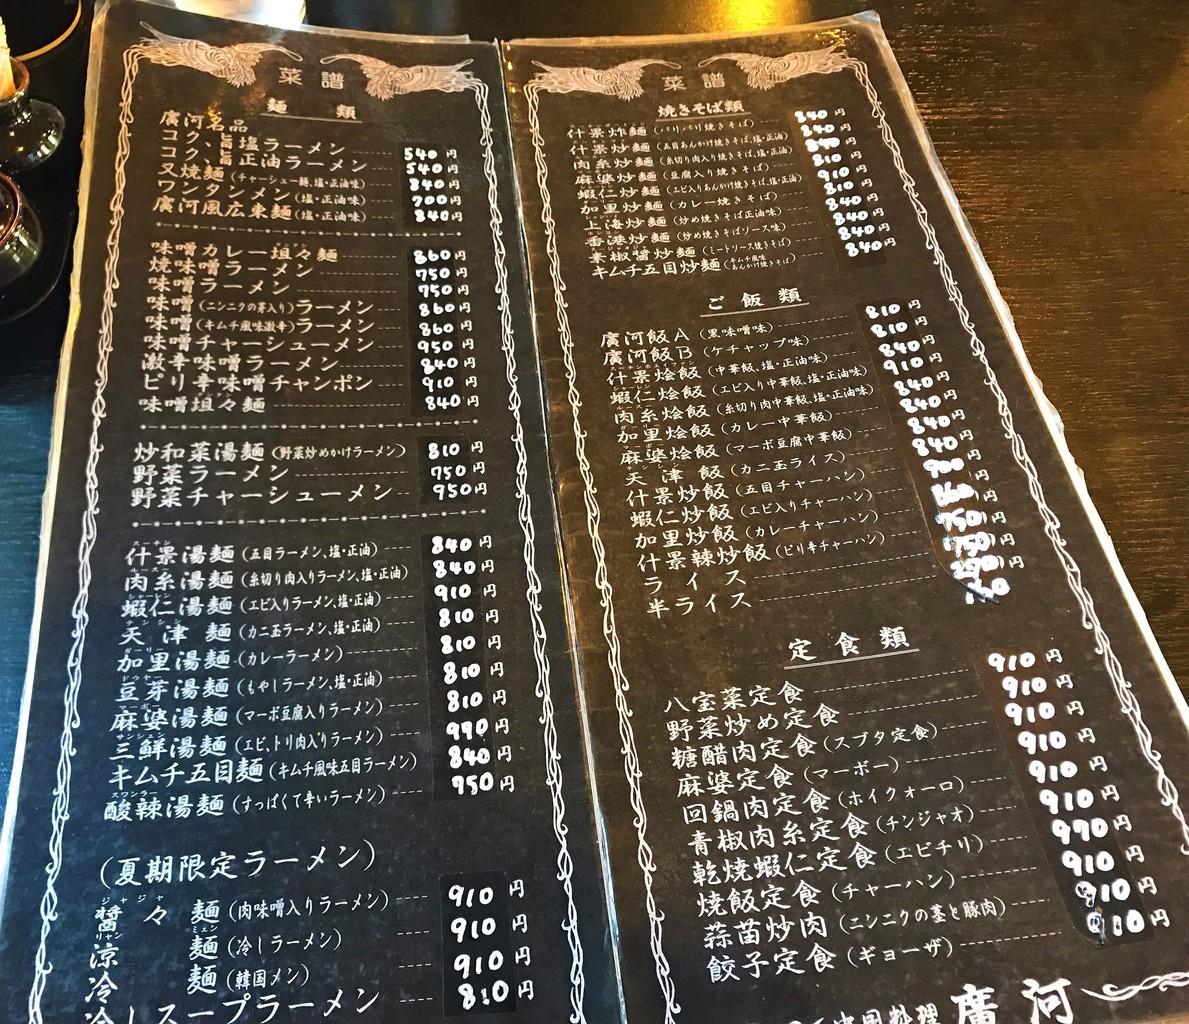 菜譜
麺類
廣河名品
コク、旨塩ラーメン 540円
コク、旨正油ラーメン 540円
叉焼麺(チャーシュー麺、塩・正油味) 840円
ワンタンメン(塩・正油味) 700円
廣河風広東麺(塩・正油味) 840円
味噌カレー坦々麺 860円
焼味噌ラーメン 750円
味噌ラーメン 750円
味噌(ニンニクの芽入り)ラーメン 860円
味噌(キムチ風味激辛)ラーメン 860円
味噌チャーシューメン 950円
激辛味噌ラーメン 840円
ピリ辛味噌チャンポン 910円
味噌坦々麺 840円
炒和菜湯麺(野菜炒めかけラーメン) 810円
野菜ラーメン 750円
野菜チャーシューメン 950円
什景湯麺(五目ラーメン、塩・正油) 840円
肉糸湯麺(糸切り肉入りラーメン、塩・正油) 840円
蝦仁湯麺(エビ入りラーメン、塩・正油) 910円
天津麺(カニ玉ラーメン、塩・正油) 810円
加里湯麺(カレーラーメン) 810円
豆芽湯麺(もやしラーメン、塩・正油) 810円
麻婆湯麺(マーボ豆腐入りラーメン) 810円
三鮮湯麺(エビ、トリ肉入りラーメン) 990円
キムチ五目麺(キムチ風味五目ラーメン) 840円
酸辣湯麺(すっぱくて辛いラーメン) 950円
(夏期限定ラーメン)
醤々麺(肉味噌入りラーメン) 910円
涼麺(冷しラーメン) 910円
冷麺(韓国メン) 910円
冷しスープラーメン 810円
菜譜
焼きそば類
什景炸麺(パリパリ焼きそば) 840円
什景炒麺(五目あんかけ焼きそば、塩・正油) 840円
肉糸炒麺(糸切り肉入り焼きそば、塩・正油) 840円
麻婆炒麺(豆腐入り焼きそば) 810円
蝦仁炒麺(エビ入りあんかけ焼きそば、塩・正油) 910円
加里炒麺(カレー焼きそば) 810円
上海炒麺(炒め焼きそば正油味) 840円
香港炒麺(炒め焼きそばソース味) 840円
素椒醤炒麺(ミートソース焼きそば) 840円
キムチ五目炒麺(キムチ風味あんかけ焼きそば) 840円
ご飯類
廣河飯A(黒味噌味) 810円
廣河飯B(ケチャップ味) 810円
什景烩飯(中華飯、塩・正油味) 840円
蝦仁烩飯(エビ入り中華飯、塩・正油味) 910円
肉糸烩飯(糸切り肉中華飯、塩・正油味) 840円
加里烩飯(カレー中華飯) 840円
麻婆烩飯(マーボ豆腐中華飯) 840円
天津飯(カニ玉ライス) 840円
什景炒飯(五目チャーハン) 900円
蝦仁炒飯(エビ入りチャーハン) 860円
加里炒飯(カレーチャーハン) 750円
什景辣炒飯(ピリ辛チャーハン) 750円
ライス 円
半ライス 円
定食類
八宝菜定食 910円
野菜炒め定食 910円
糖醋肉定食(スブタ定食) 910円
麻婆定食(マーボー) 910円
回鍋肉定食(ホイクォーロ) 910円
青椒肉糸定食(チンジャオ) 910円
乾焼蝦仁定食(エビチリ) 970円
焼飯定食(チャーハン) 910円
蒜苗炒肉(ニンニクの茎と豚肉) 910円
餃子定食(ギョーザ) 910円
中国料理 廣河